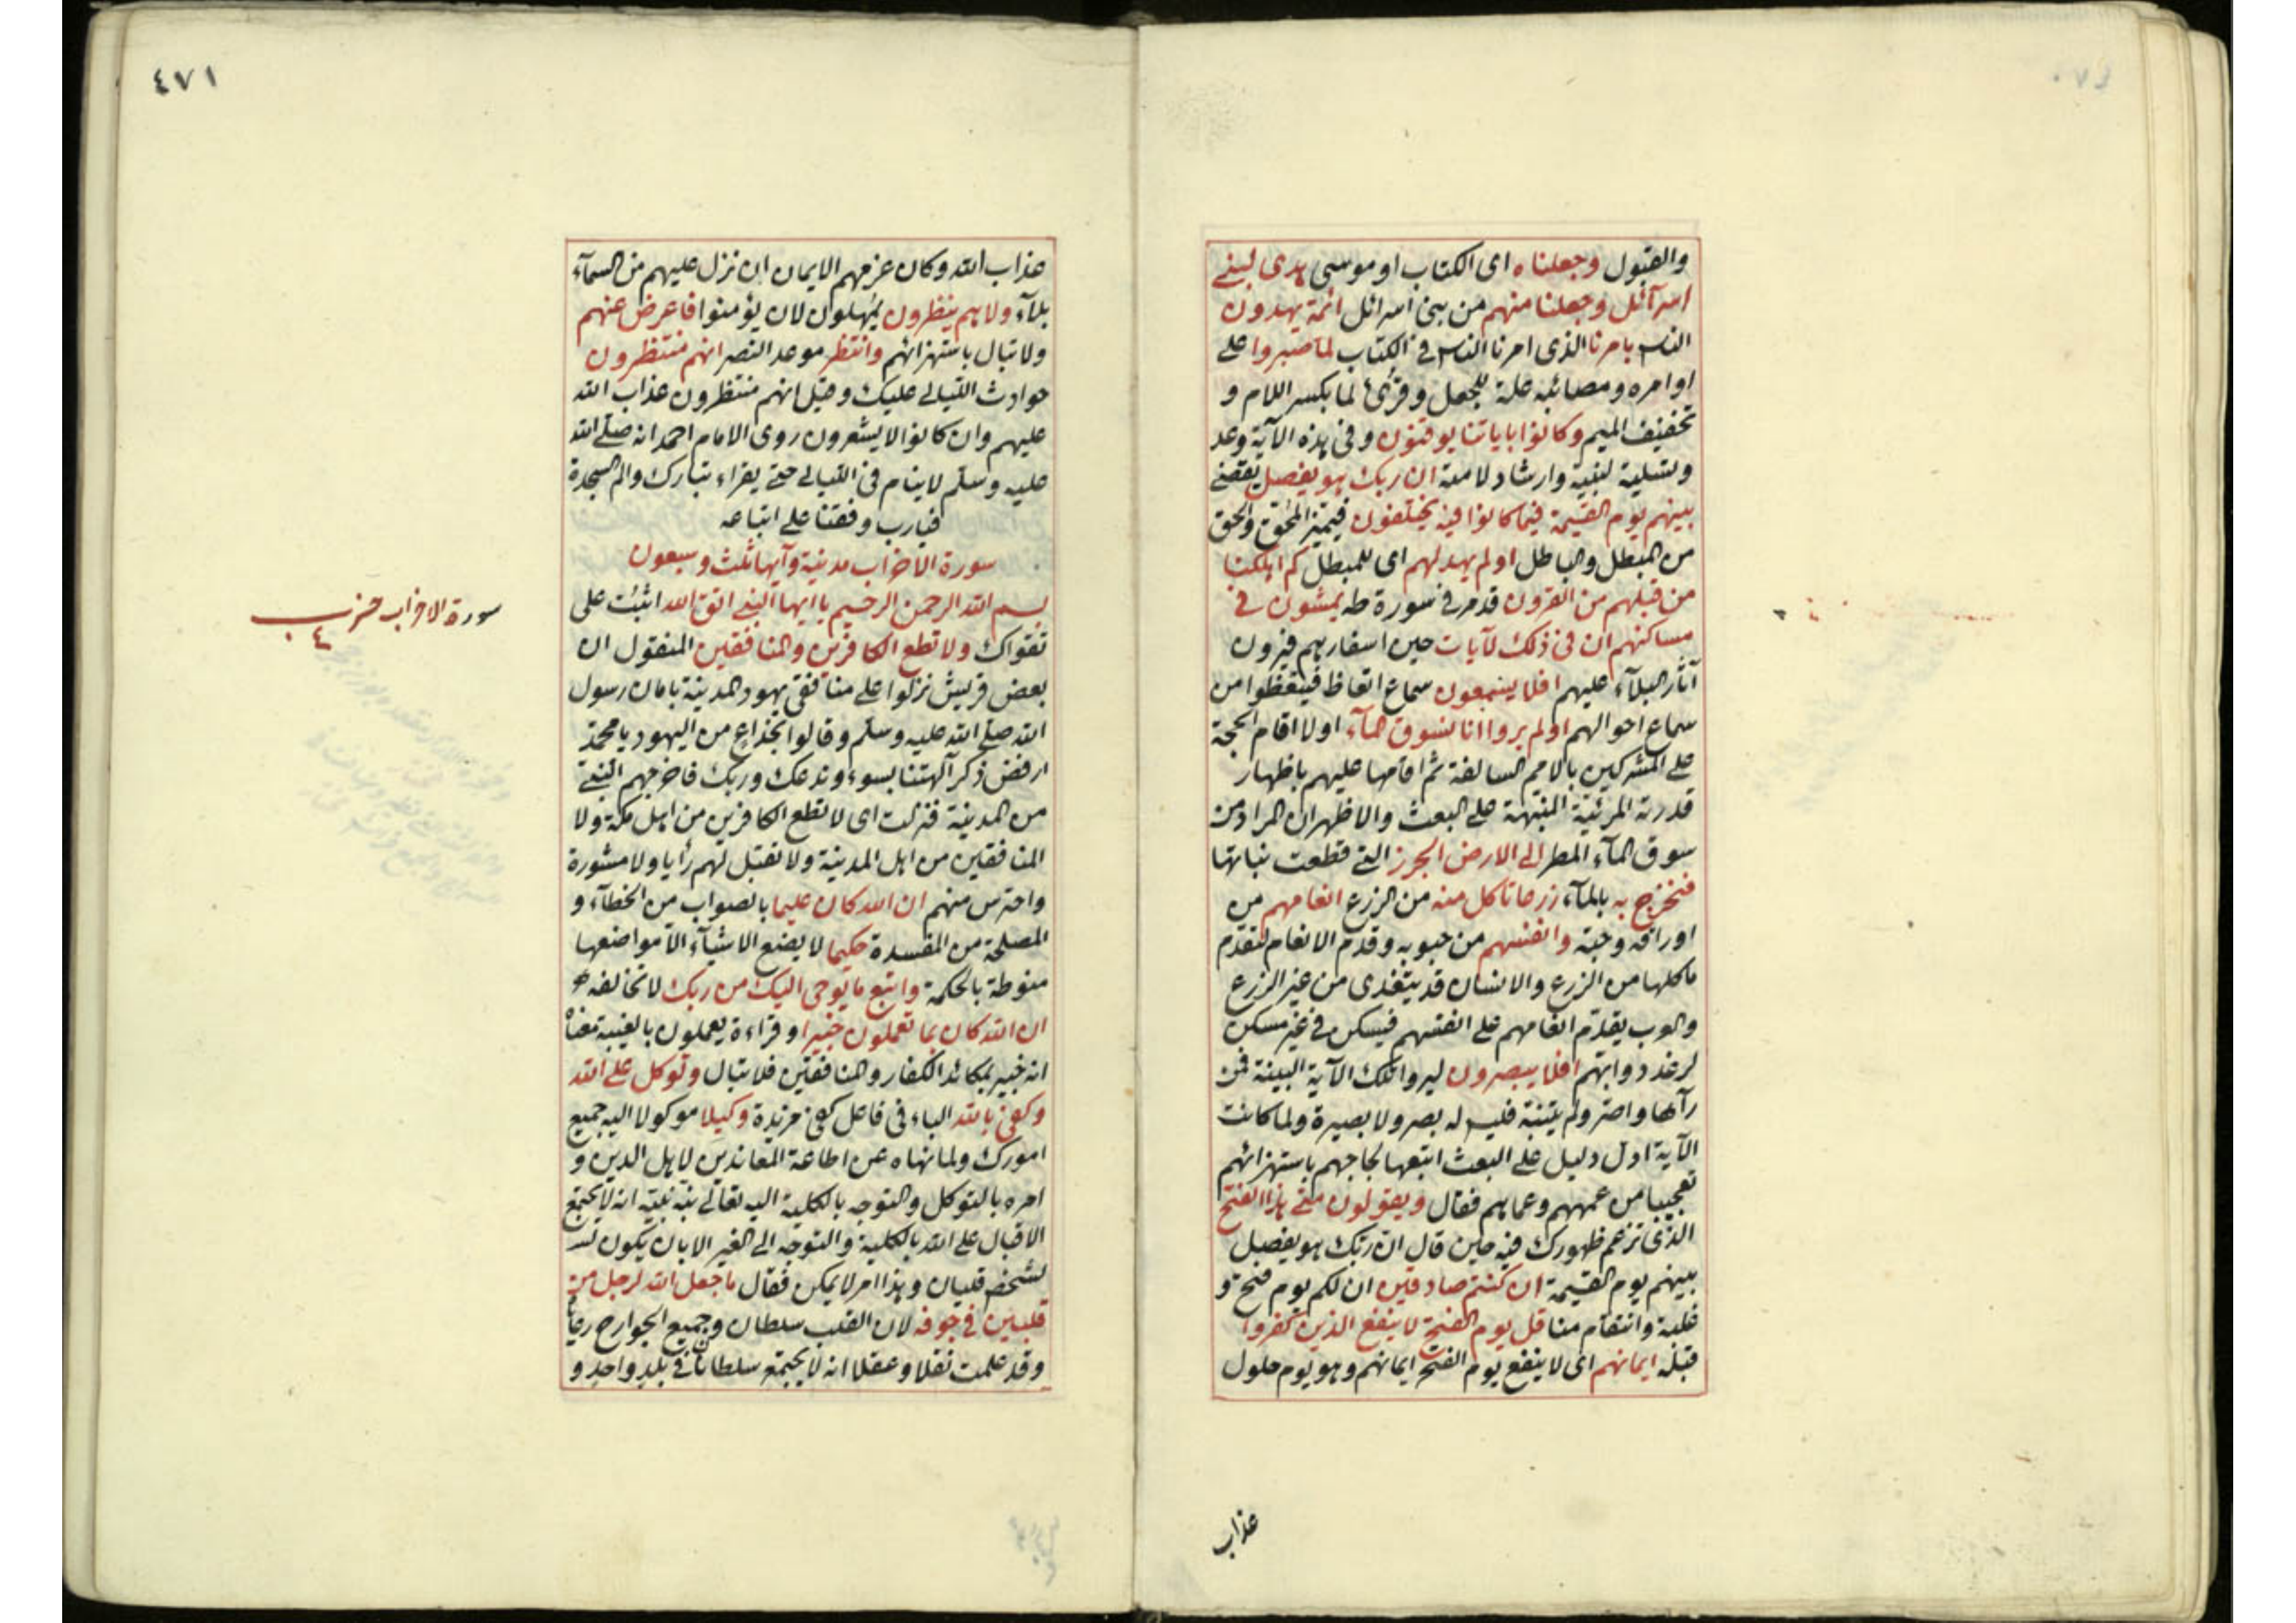 والقبول وجعلناه اى الكتاب او موسى هدى لبنى
اسرائل وجعلنا منهم من بنى اسرائل ائمة يهدون
الناس بامرنا الذى امرنا الناس فى الكتاب لما صبروا على
اوامره ومصائبه علة للجعل وقرئ لما بكسر اللام و
تخفيف الميم وكانوا باياتنا يوقنون وفى هذه الآية وعد
وتسلية لنبيه وارشاد لامته ان ربك هو يفصل يقضى
بينهم يوم القيمة فيما كانوا فيه يختلفون فيميز المحق والحق
من المبطل والباطل اولم يهد لهم اى للمبطل كم اهلكنا
من قبلهم من القرون قد مر فى سورة طه يمشون فى
مساكنهم ان فى ذلك لآيات حين اسفارهم فيرون
آثار البلآء عليهم افلا يسمعون سماع اتعاظ فيتعظوا من
سماع احوالهم اولم يروا انا نسوق المآء اولا اقام الحجة
على المشركين بالامم السالفة ثم اقامها عليهم باظهار
قدرته المرئية المنبهة على البعث والاظهر ان المراد من
سوق المآء المطر الى الارض الجرز التى قطعت نباتها
فنخرج به بالمآء زرعا تاكل منه من الزرع انعامهم من
اوراقه وحبه وانفسهم من حبوبه وقدم الانعام لتقدم
ماكلها من الزرع والانسان قد يتغذى من غير الزرع
والعرب يقدم انعامهم على انفسهم فيسكن فى غير مسكن
لرغد دوابهم افلا يبصرون ليروا تلك الآية البينة فمن
رآها واصر ولم يتنبه فليس له بصر ولا بصيرة ولما كانت
الآية ادل دليل على البعث اتبعها لجاجهم باستهزائهم
تعجيبا من عمههم وعماهم فقال ويقولون متى هذا الفتح
الذى تزعم ظهورك فيه حين قال ان ربك هو يفصل
بينهم يوم القيمة ان كنتم صادقين ان لكم يوم فتح و
غلبة وانتقام منا قل يوم الفتح لا ينفع الذين كفروا
قبله ايمانهم اى لا ينفع يوم الفتح ايمانهم وهو يوم حلول
عذاب
٤٧١
عذاب الله وكان عزمهم الايمان ان نزل عليهم من السمآء
بلآء ولا هم ينظرون يمهلون لان يؤمنوا فاعرض عنهم
ولا تبال باستهزائهم وانتظر موعد النصر انهم منتظرون
حوادث الليالى عليك وقيل انهم منتظرون عذاب الله
عليهم وان كانوا لا يشعرون روى الامام احمد انه صلى الله
عليه وسلم لا ينام فى الليالى حتى يقراء تبارك والم السجدة
فيارب وفقنا على اتباعه
سورة الاحزاب مدنية وآيها ثلث وسبعون
بسم الله الرحمن الرحيم يا ايها النبى اتق الله اثبت على
تقواك ولا تطع الكافرين والمنافقين المنقول ان
بعض قريش نزلوا على منافقى يهود المدينة بامان رسول
الله صلى الله عليه وسلم وقالوا بخداع من اليهود يا محمد
ارفض ذكر آلهتنا بسوء وندعك وربك فاخرجهم النبى
من المدينة فنزلت اى لا تطع الكافرين من اهل مكة ولا
المنافقين من اهل المدينة ولا تقبل لهم رأيا ولا مشورة
واحترس منهم ان الله كان عليما بالصواب من الخطآء و
المصلحة من المفسدة حكيما لا يضع الاشيآء الا مواضعها
منوطة بالحكمة واتبع ما يوحى اليك من ربك لا تخالفه
ان الله كان بما تعملون خبيرا وقراءة يعملون بالغيبة معناه
انه خبير بمكائد الكفار والمنافقين فلا تبال وتوكل على الله
وكفى بالله الباء فى فاعل كفى مزيدة وكيلا موكولا اليه جميع
امورك ولما نهاه عن اطاعة المعاندين لاهل الدين و
امره بالتوكل والتوجه بالكلية اليه تعالى نبه نبيه انه لا يجتمع
الاقبال على الله بالكلية والتوجه الى الغير الا بان يكون
لشخص قلبان وهذا امر لا يمكن فقال ما جعل الله لرجل من
قلبين فى جوفه لان القلب سلطان وجميع الجوارح رعاياه
وقد علمت نقلا وعقلا انه لا يجتمع سلطانان فى بلد واحد و
سورة الاحزاب حزب
٤